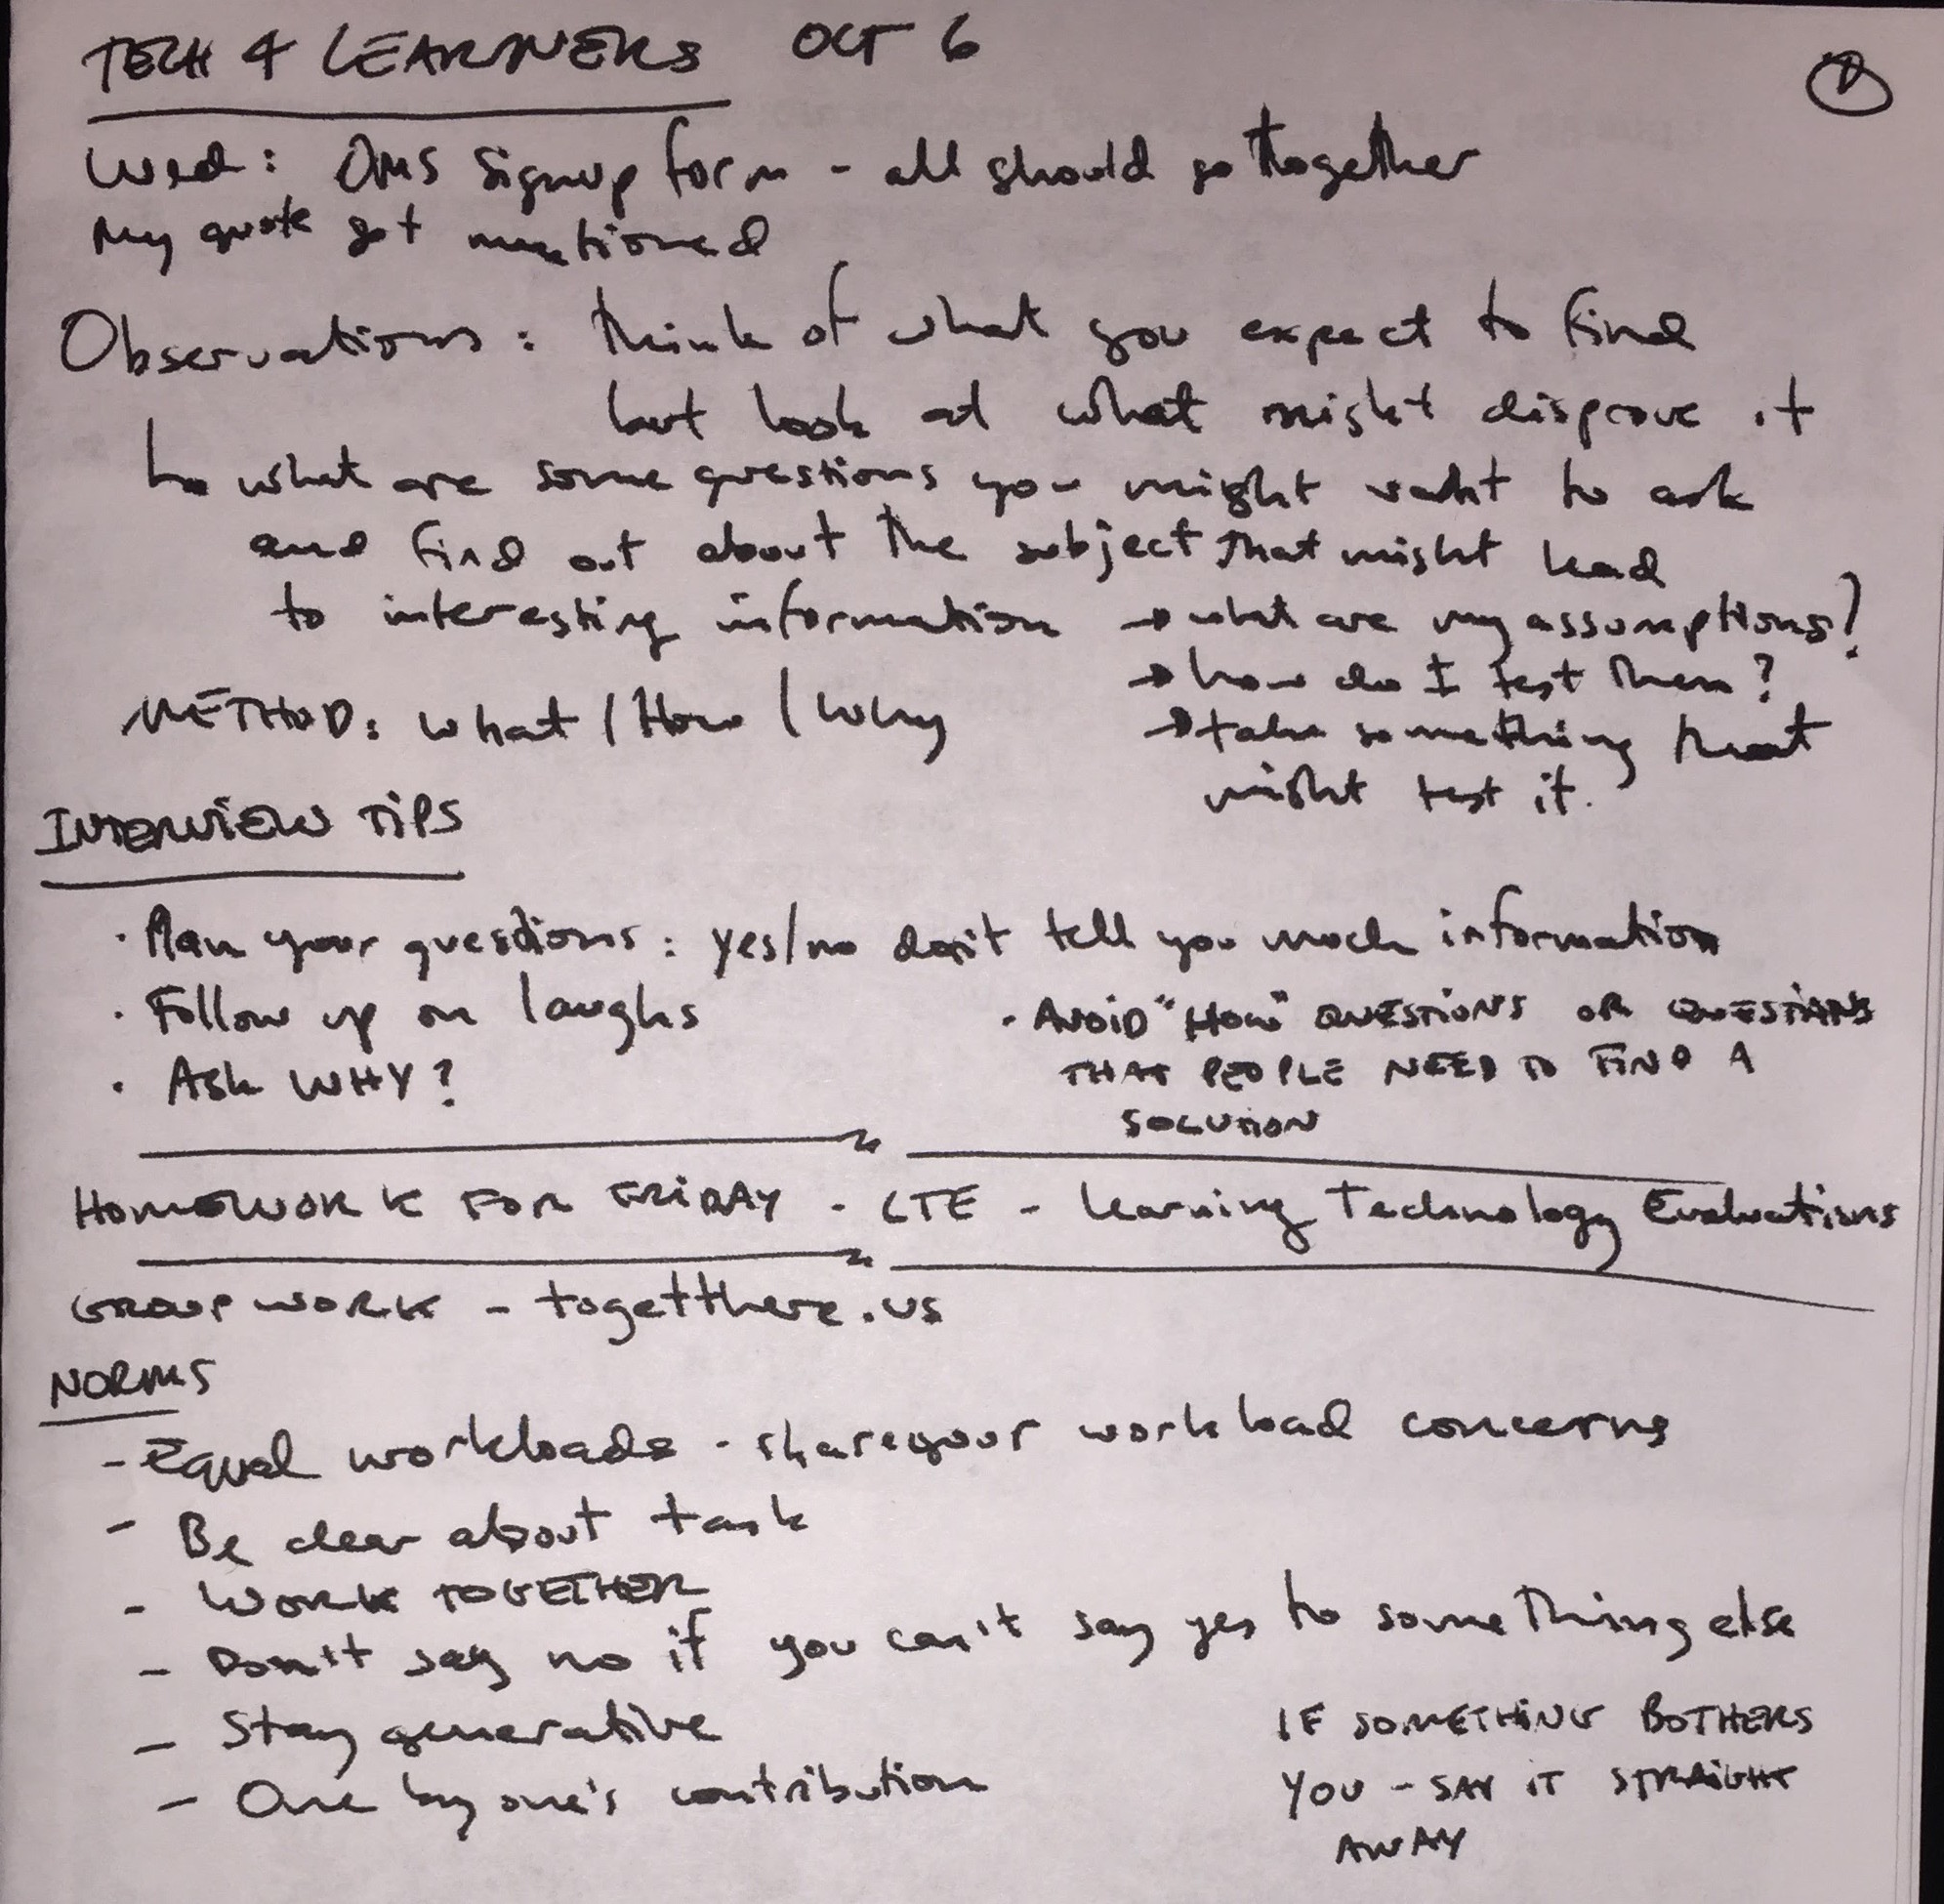 TECH & LEARNERS OCT 6
Wed: OMS Signup form - all should go together
My quote got mentioned
Observations: think of what you expect to find
but look at what might disprove it
↳ what are some questions you might want to ask
and find out about the subject that might lead
to interesting information → what are my assumptions?
→ how do I test them?
METHOD: what / How / Why
→ take something that
might test it.
INTERVIEW TIPS
· Plan your questions: yes/no don't tell you much information
· Follow up on laughs
· AVOID "HOW" QUESTIONS OR QUESTIONS
THAT PEOPLE NEED TO FIND A
SOLUTION
· Ask WHY?
HOMEWORK FOR FRIDAY - LTE - Learning Technology Evaluations
GROUP WORK - togetthere.us
NORMS
- Equal workloads - share your workload concerns
- Be clear about task
- WORK TOGETHER
- Don't say no if you can't say yes to something else
- Stay generative
- One by one's contribution
IF SOMETHING BOTHERS
YOU - SAY IT STRAIGHT
AWAY